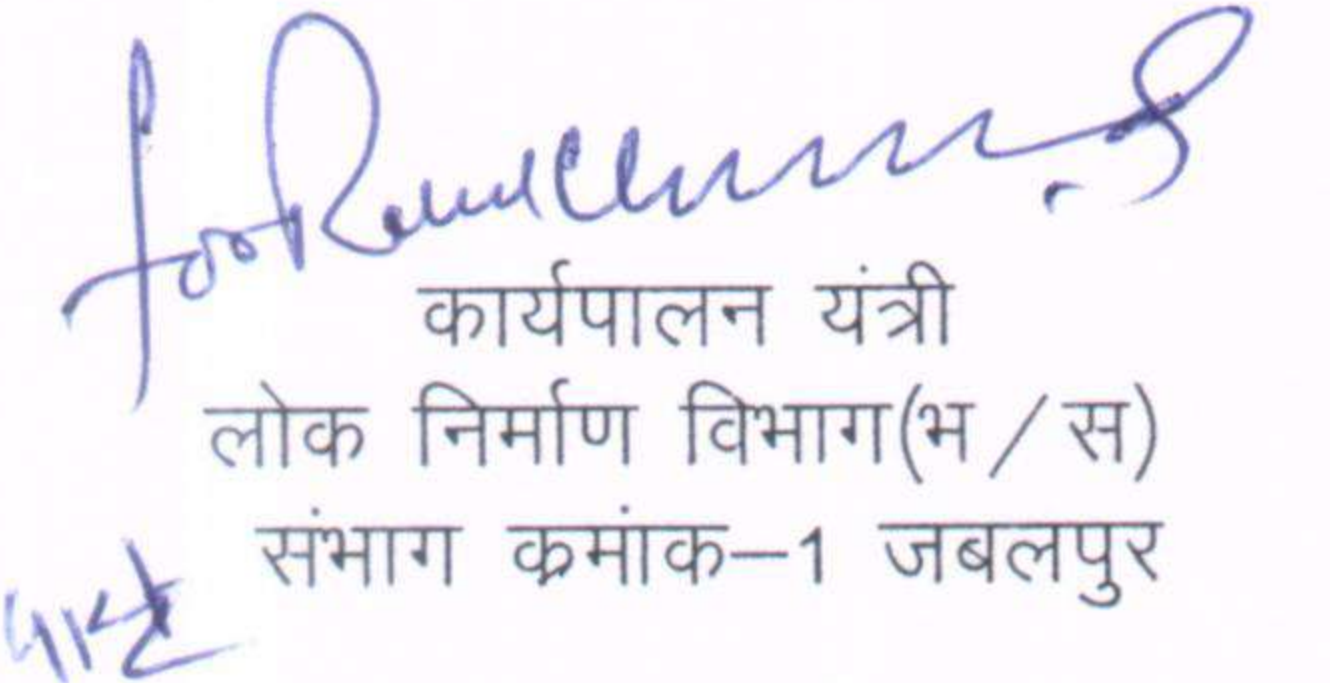 for
कार्यपालन यंत्री
लोक निर्माण विभाग(भ / स)
संभाग क्रमांक–1 जबलपुर